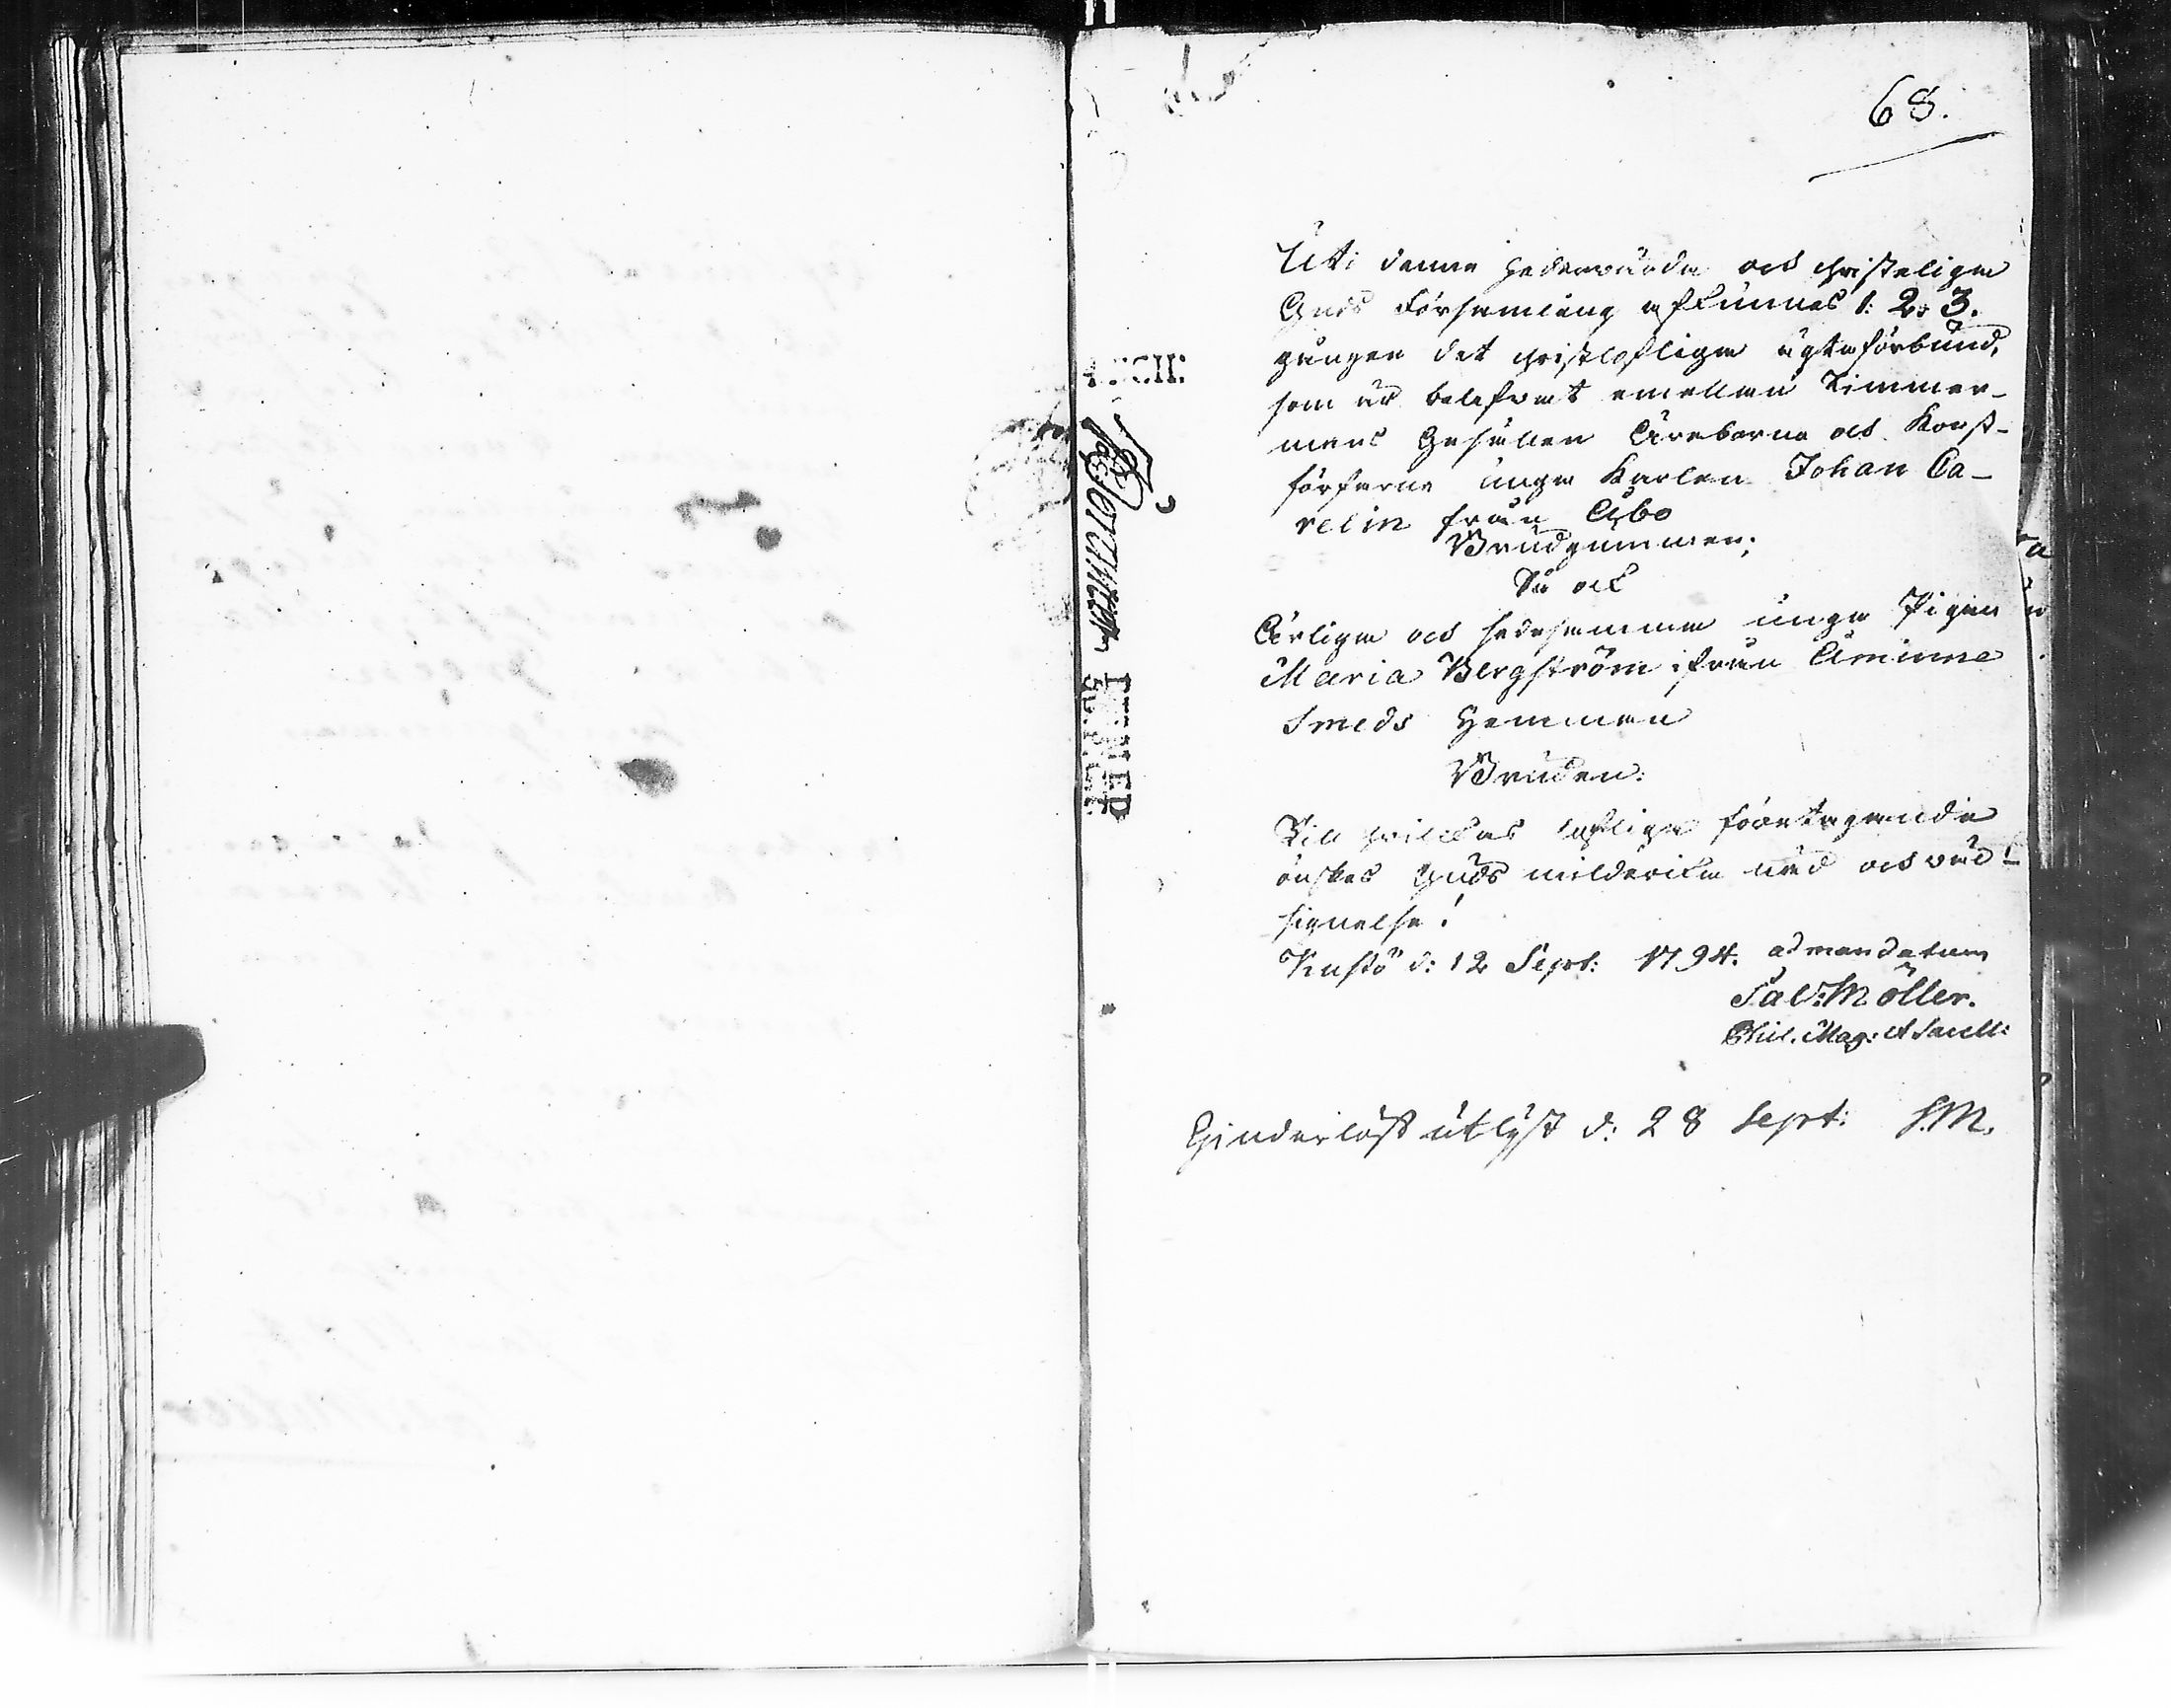 68.
Uti denna hedervärda och christeliga
Guds Församling afkunnas 1: 2: 3.
gången det christlofliga ägtaförbund,
som är belefvat emellan Timmer-
mans Gesällen Äreborne och Konst-
förfarne unga Karlen Johan Ca-
relin från Åbo
Brudgummen;
Så ock
Ärliga och sedesamma unga Pigan
Maria Bergström ifrån Åminne
Smeds Hemman
Bruden:
Till hvilkas lofliga företagande
önskas Guds milderika nåd och väl-
signelse!
Kustö d: 12 Sept: 1794. ad mandatum
Sal: Möller.
Phil. Mag: et Sacell:
Hinderlöst utlyst d: 28 Sept: S.M.